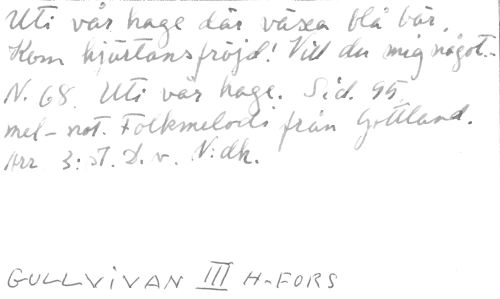 Uti vår hage där växa blå bär.
Kom hjärtansfröjd! Vill du mig något.-
N. 68. Uti vår hage. Sid. 95.
mel- not. Folkmelodi från Gottland.
Arr 3: st. D. v. N:dk.
GULLVIVAN III H-FORS